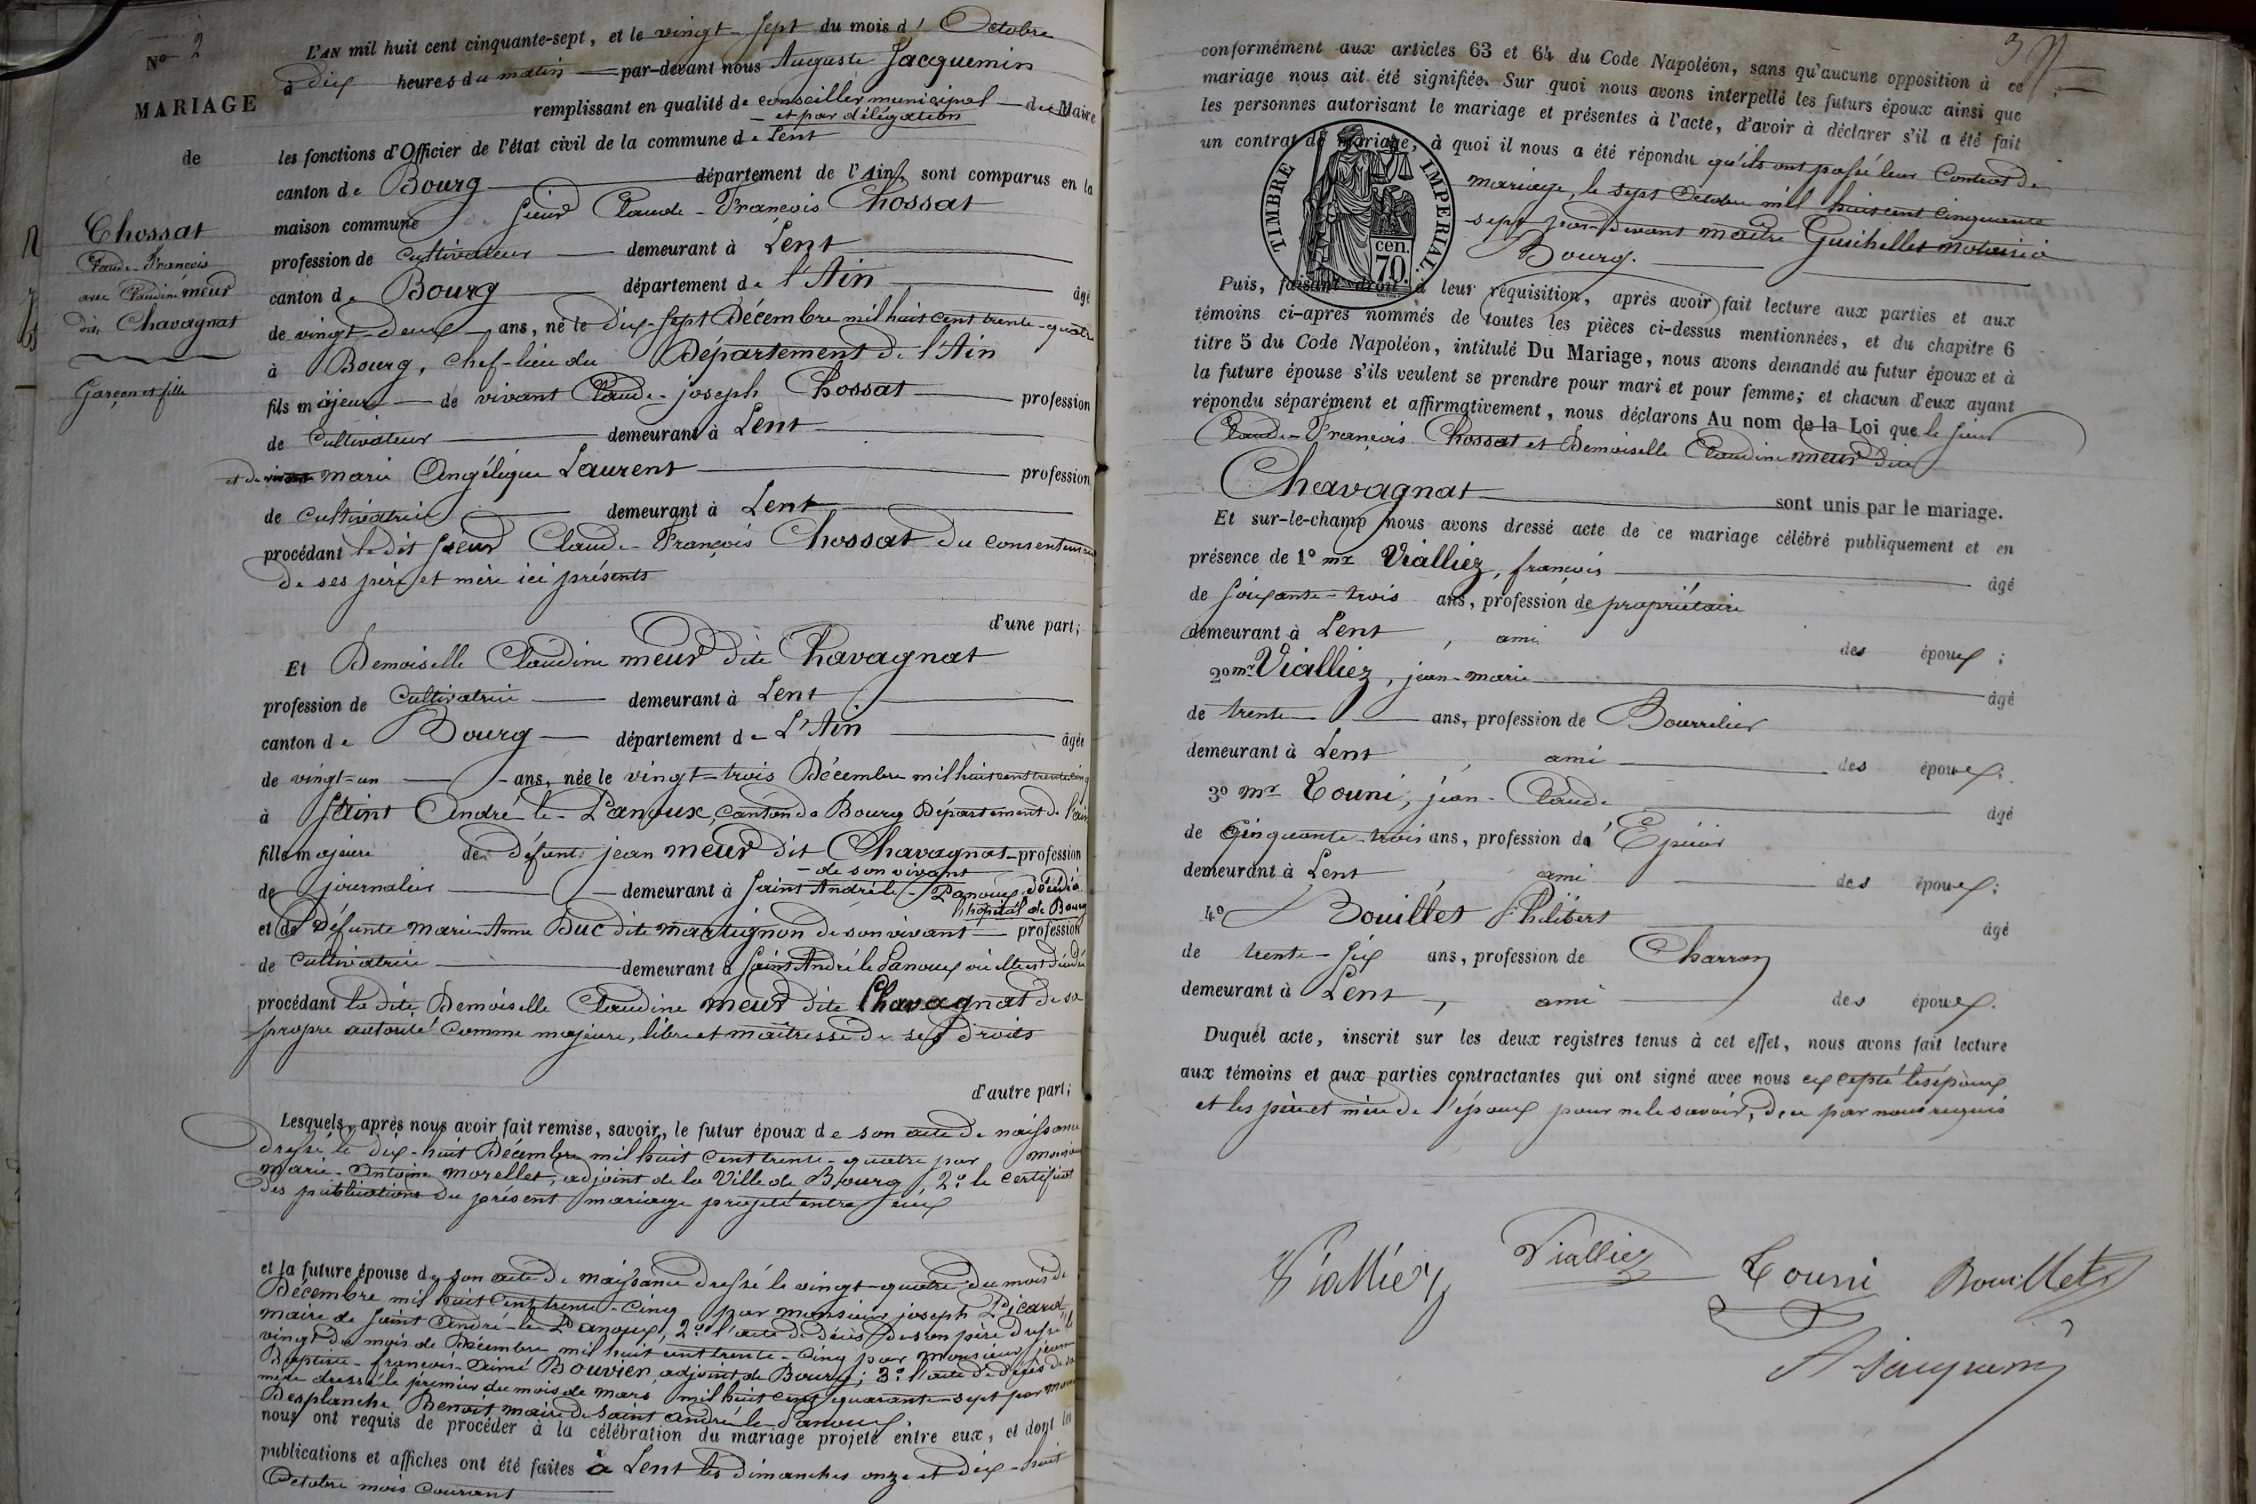 N° 2
MARIAGE
de
Chossat
Claude-François
avec Claudine meur
dite Chavagnat
Garçon et fille
L'AN mil huit cent cinquante-sept, et le vingt-sept du mois d'Octobre
à dix heures du matin par-devant nous Auguste Jacquemin
remplissant en qualité de conseiller municipal du Maire
et par délégation
les fonctions d'Officier de l'état civil de la commune de Lent
canton de Bourg département de l'Ain, sont comparus en la
maison commune Sieur Claude-François Chossat
profession de cultivateur demeurant à Lent
canton de Bourg département de l'Ain âgé
de vingt-deux ans, né le dix-sept Décembre mil huit cent trente-quatre
à Bourg, chef-lieu du Département de l'Ain
fils majeur de vivant Claude-joseph Chossat profession
de cultivateur demeurant à Lent
et de marie Angélique Laurent profession
de cultivatrice demeurant à Lent
procédant le dit sieur Claude-François Chossat du consentement
de ses père et mère ici présents
d'une part;
Et Demoiselle Claudine meur dite Chavagnat
profession de cultivatrice demeurant à Lent
canton de Bourg département de L'Ain âgée
de vingt-un ans, née le vingt-trois Décembre mil huit cent trente cinq
à Saint André-le-Panoux, canton de Bourg Département de l'ain
fille majeure de défunt jean meur dit Chavagnat profession
de son vivant
de journalier demeurant à Saint André le-Panoux, décédé à
l'hôpital de Bourg
et de Défunte marie-Anne Buc dite martignon de son vivant profession
de cultivatrice demeurant à Saint André le Panoux où elle est décédée
procédant la dite Demoiselle Claudine meur dite Chavagnat de sa
propre autorité comme majeure, libre et maîtresse de ses droits
d'autre part;
Lesquels, après nous avoir fait remise, savoir, le futur époux de son acte de naissance
dressé le dix-huit Décembre mil huit cent trente-quatre par monsieur
marie-Antoine morellet, adjoint de la Ville de Bourg, 2° le certificat
des publications du présent mariage projeté entre eux
et la future épouse de son acte de naissance dressé le vingt-quatre du mois de
Décembre mil huit cent trente-cinq par monsieur joseph Picard
maire de Saint André-le-Panoux, 2° l'acte de décès de son père dressé le
vingt du mois de Décembre mil huit cent trente-cinq par monsieur jean
Baptiste-françois-Aimé Bouvier adjoint de Bourg; 3° l'acte de décès de sa
mère dressé le premier du mois de mars mil huit cent quarante-sept par
Desplanche Benoit maire de Saint André le Panoux.
nous ont requis de procéder à la célébration du mariage projeté entre eux, et dont les
publications et affiches ont été faites à Lent les dimanches onze et dix-huit
Octobre mois courant
conformément aux articles 63 et 64 du Code Napoléon, sans qu'aucune opposition à ce
mariage nous ait été signifiée. Sur quoi nous avons interpellé les futurs époux ainsi que
les personnes autorisant le mariage et présentes à l'acte, d'avoir à déclarer s'il a été fait
un contrat de mariage, à quoi il nous a été répondu qu'ils ont passé leur Contrat de
mariage, le sept Octobre mil huit cent cinquante
sept par-devant maître notaire à
Bourg.
TIMBRE IMPERIAL.
70 cen.
Puis, faisant droit à leur réquisition, après avoir fait lecture aux parties et aux
témoins ci-après nommés de toutes les pièces ci-dessus mentionnées, et du chapitre 6
titre 5 du Code Napoléon, intitulé Du Mariage, nous avons demandé au futur époux et à
la future épouse s'ils veulent se prendre pour mari et pour femme; et chacun d'eux ayant
répondu séparément et affirmativement, nous déclarons Au nom de la Loi que le sieur
Claude-François Chossat et Demoiselle Claudine meur dite
Chavagnat sont unis par le mariage.
Et sur-le-champ nous avons dressé acte de ce mariage célébré publiquement et en
présence de 1° mr Vialliez, françois âgé
de soixante-trois ans, profession de propriétaire
demeurant à Lent, ami des époux;
2° mr Vialliez, jean-marie âgé
de trente ans, profession de Bourrelier
demeurant à Lent, ami des époux;
3° mr Touni, jean-Claude âgé
de Cinquante-trois ans, profession d'Epicier
demeurant à Lent, ami des époux;
4° Bouillet Philibert âgé
de trente-six ans, profession de Charron
demeurant à Lent, ami des époux.
Duquel acte, inscrit sur les deux registres tenus à cet effet, nous avons fait lecture
aux témoins et aux parties contractantes qui ont signé avec nous excepté les époux
et les père et mère de l'époux pour ne le savoir, de ce par nous requis
Vialliez Vialliez Touni Bouillet
A Jacquemin